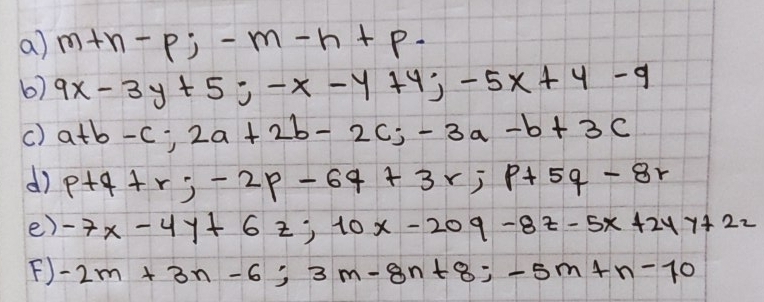 a) m+n-p; -m-n+p.
b) 9x-3y+5; -x-y+4; -5x+4-9
c) a+b-c; 2a+2b-2c; -3a-b+3c
d) p+q+r; -2p-6q+3r; p+5q-8r
e) -7x-4y+6z; 10x-20q-8z-5x+24y+2z
F) -2m+3n-6; 3m-8n+8; -5m+n-10